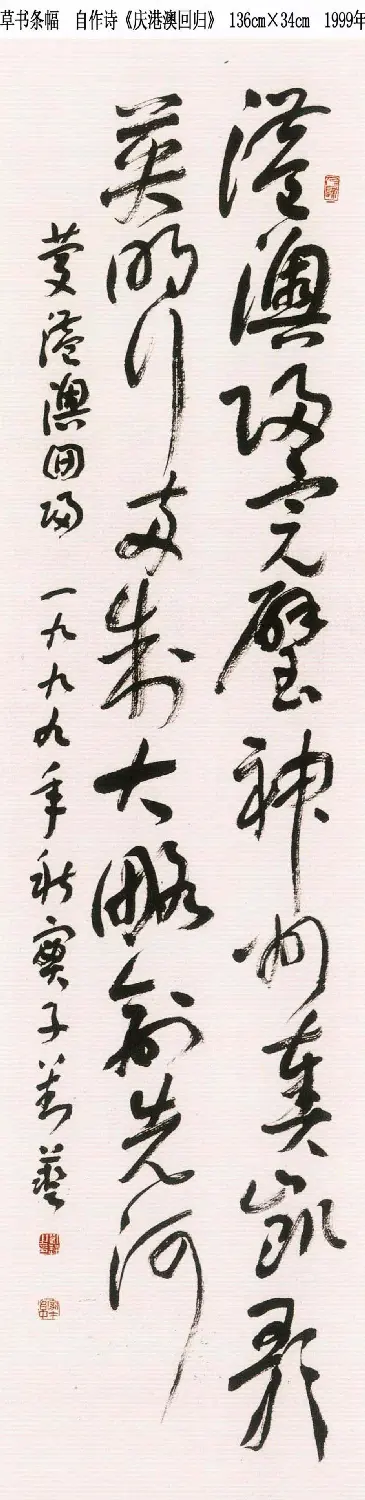 草书条幅 自作诗《庆港澳回归》 136cm×34cm 1999年
港澳归完璧神州奏凯歌
英明行两制大略创先河
庆港澳回归 一九九九年秋 子万艺